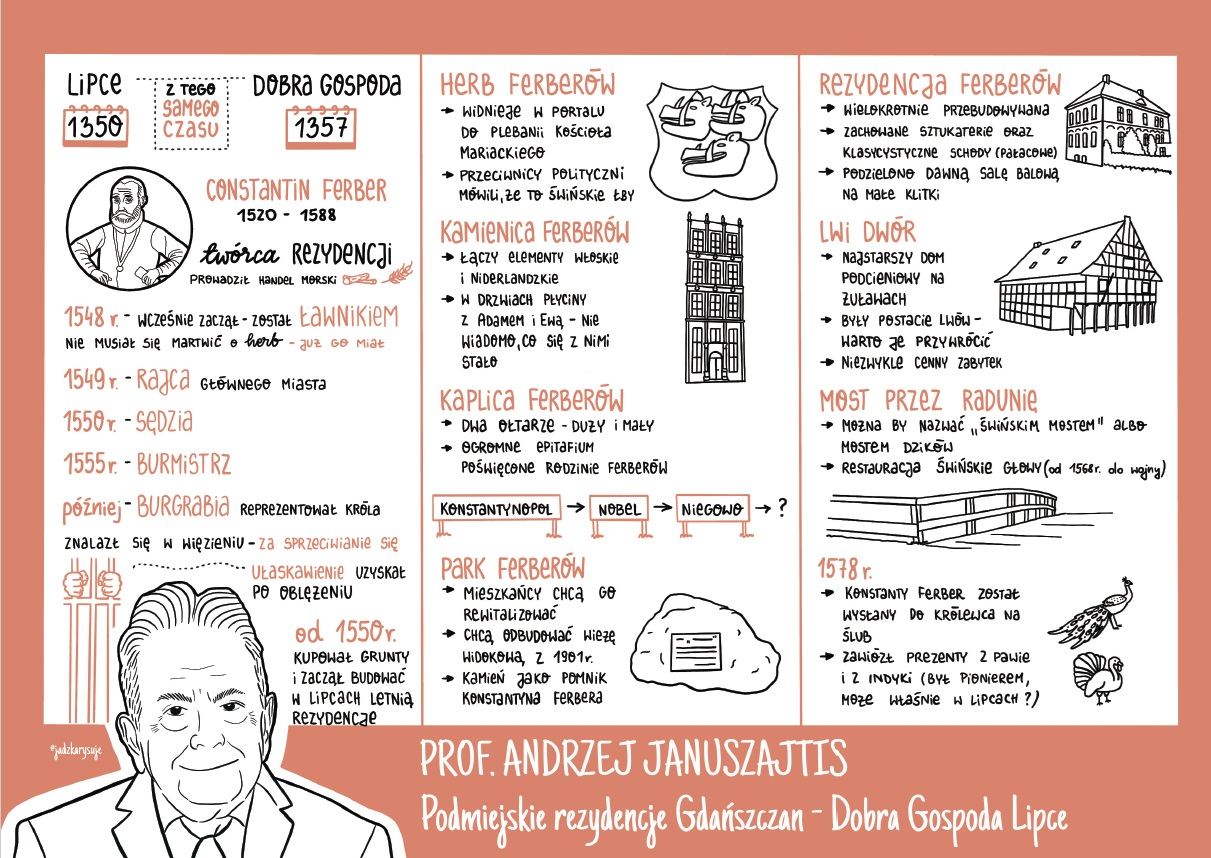 LIPCE
1350
Z TEGO
SAMEGO
CZASU
DOBRA GOSPODA
1357
CONSTANTIN FERBER
1520 - 1588
twórca REZYDENCJI
PROWADZIŁ HANDEL MORSKI
1548 r. - WCZEŚNIE ZACZĄŁ - ZOSTAŁ ŁAWNIKIEM
NIE MUSIAŁ SIĘ MARTWIĆ O herb - JUŻ GO MIAŁ
1549 r. - RAJCA GŁÓWNEGO MIASTA
1550 r. - SĘDZIA
1555 r. - BURMISTRZ
później - BURGRABIA REPREZENTOWAŁ KRÓLA
ZNALAZŁ SIĘ W WIĘZIENIU - ZA SPRZECIWIANIE SIĘ
UŁASKAWIENIE UZYSKAŁ
PO OBLĘŻENIU
od 1550 r.
KUPOWAŁ GRUNTY
I ZACZĄŁ BUDOWAĆ
W LIPCACH LETNIĄ
REZYDENCJĘ
HERB FERBERÓW
→ WIDNIEJE W PORTALU
DO PLEBANII KOŚCIOŁA
MARIACKIEGO
→ PRZECIWNICY POLITYCZNI
MÓWILI, ŻE TO ŚWIŃSKIE ŁBY
KAMIENICA FERBERÓW
→ ŁĄCZY ELEMENTY WŁOSKIE
I NIDERLANDZKIE
→ W DRZWIACH PŁYCINY
Z ADAMEM I EWĄ - NIE
WIADOMO, CO SIĘ Z NIMI
STAŁO
KAPLICA FERBERÓW
→ DWA OŁTARZE - DUŻY I MAŁY
→ OGROMNE EPITAFIUM
POŚWIĘCONE RODZINIE FERBERÓW
KONSTANTYNOPOL → NOBEL → NIEGOWO → ?
PARK FERBERÓW
→ MIESZKAŃCY CHCĄ GO
REWITALIZOWAĆ
→ CHCĄ ODBUDOWAĆ WIEŻĘ
WIDOKOWĄ Z 1901 r.
→ KAMIEŃ JAKO POMNIK
KONSTANTYNA FERBERA
REZYDENCJA FERBERÓW
→ WIELOKROTNIE PRZEBUDOWYWANA
→ ZACHOWANE SZTUKATERIE ORAZ
KLASYCYSTYCZNE SCHODY (PAŁACOWE)
→ PODZIELONO DAWNĄ SALĘ BALOWĄ
NA MAŁE KLITKI
LWI DWÓR
→ NAJSTARSZY DOM
PODCIENIOWY NA
ŻUŁAWACH
→ BYŁY POSTACIE LWÓW -
WARTO JE PRZYWRÓCIĆ
→ NIEZWYKLE CENNY ZABYTEK
MOST PRZEZ RADUNIĘ
→ MOŻNA BY NAZWAĆ „ŚWIŃSKIM MOSTEM" ALBO
MOSTEM DZIKÓW
→ RESTAURACJA ŚWIŃSKIE GŁOWY (od 1568 r. do wojny)
1578 r.
→ KONSTANTY FERBER ZOSTAŁ
WYSŁANY DO KRÓLEWCA NA
ŚLUB
→ ZAWIÓZŁ PREZENTY 2 PAWIE
I 2 INDYKI (BYŁ PIONIEREM,
MOŻE WŁAŚNIE W LIPCACH ?)
@jadzkarysuje
PROF. ANDRZEJ JANUSZAJTIS
Podmiejskie rezydencje Gdańszczan - Dobra Gospoda Lipce